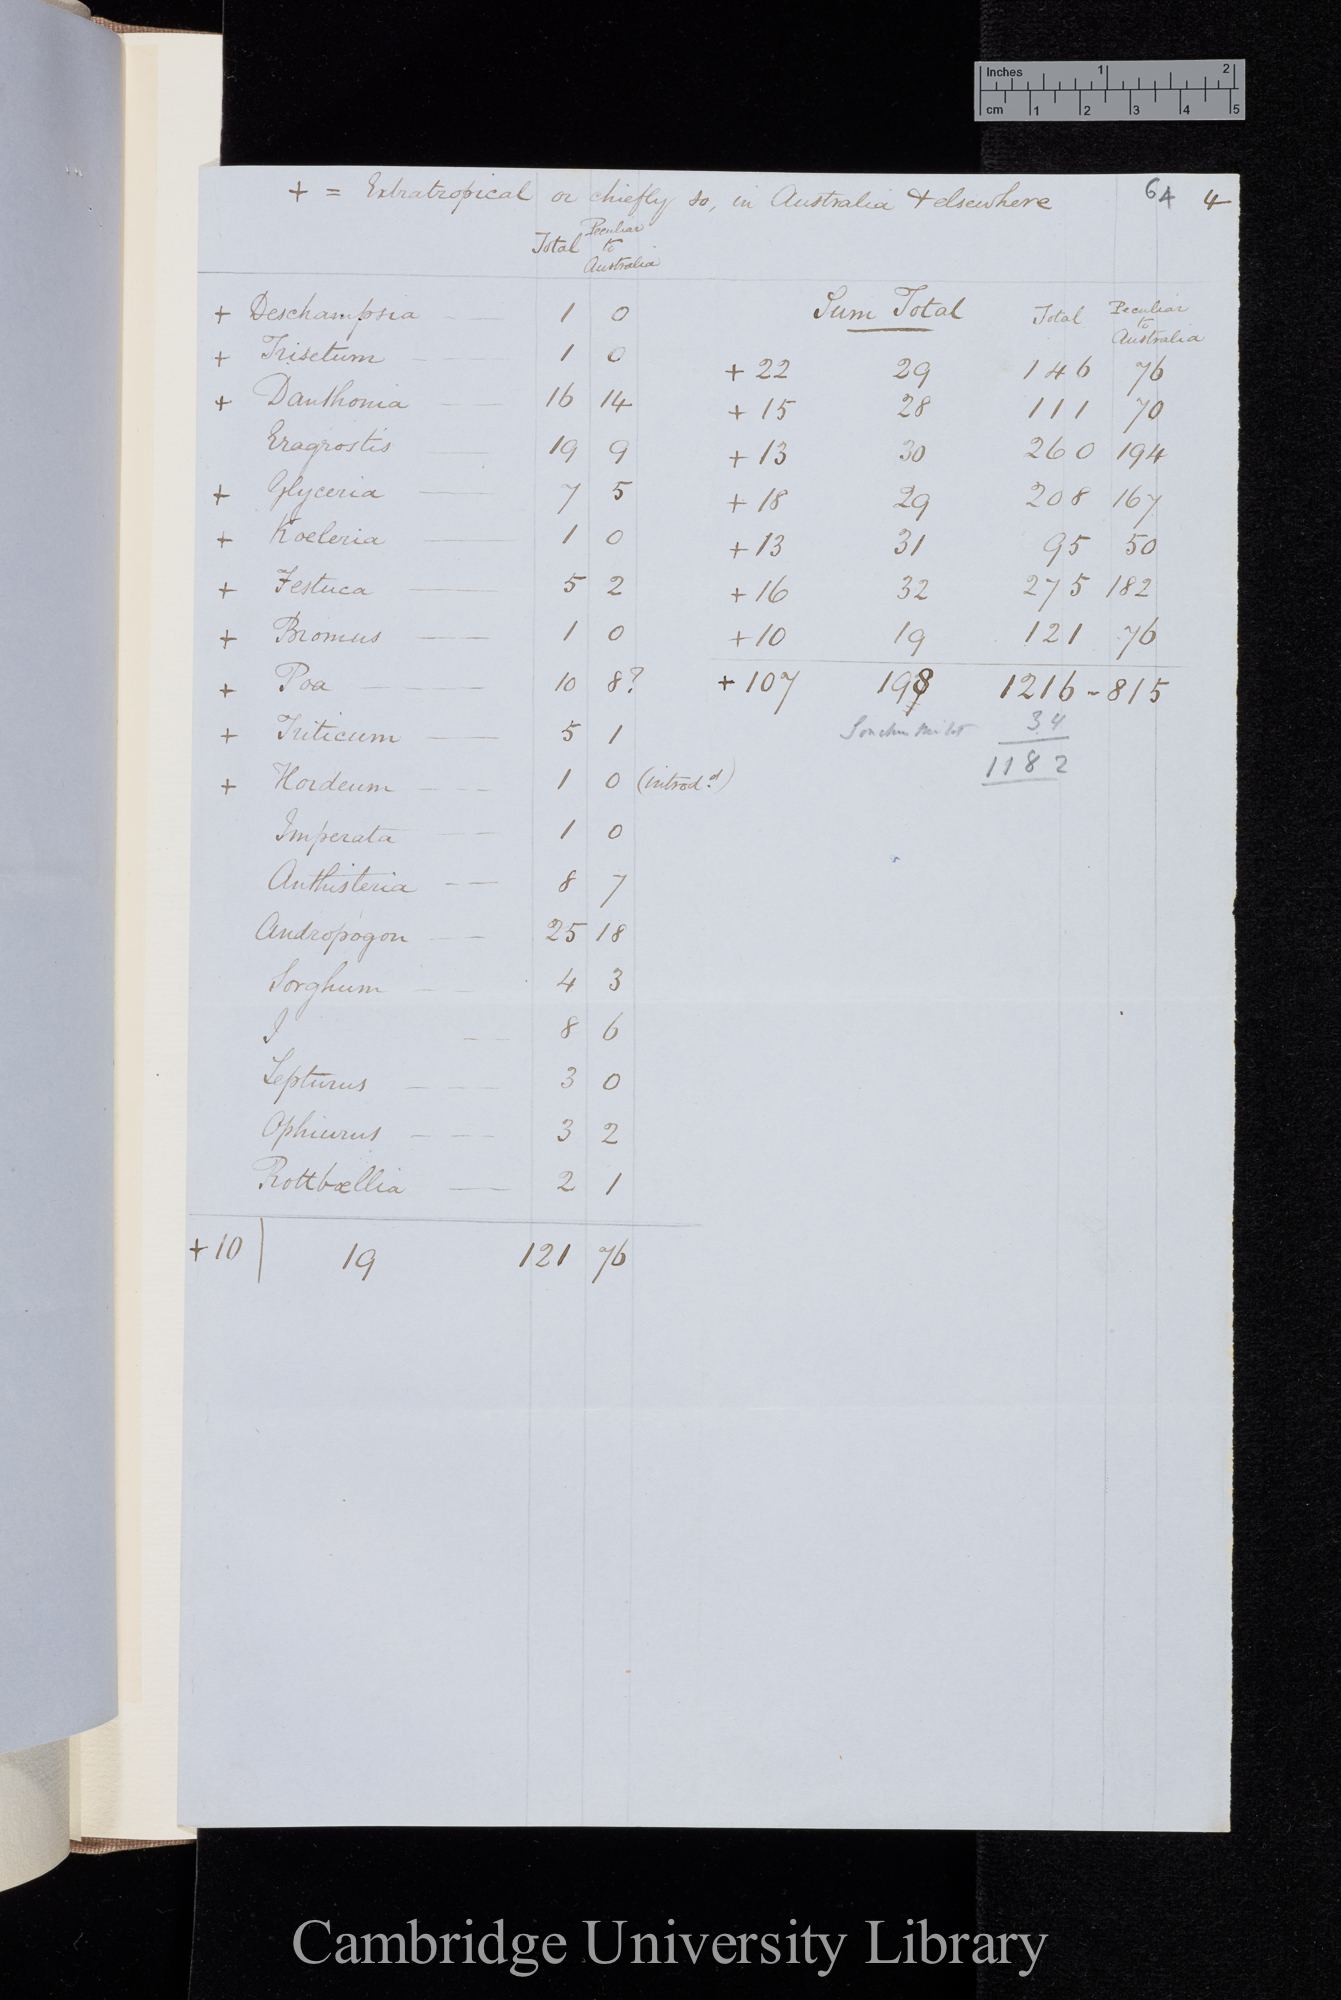 Inches 1 2
cm 1 2 3 4 5
+ = Extratropical or chiefly so, in Australia & elsewhere 64 4
Total Peculiar to Australia
+ Deschampsia 1 0
+ Trisetum 1 0
+ Danthonia 16 14
Eragrostis 19 9
+ Glyceria 7 5
+ Koeleria 1 0
+ Festuca 5 2
+ Bromus 1 0
+ Poa 10 8?
+ Triticum 5 1
+ Hordeum 1 0 (introdd.)
Imperata 1 0
Anthisteria 8 7
Andropogon 25 18
Sorghum 4 3
I 8 6
Lepturus 3 0
Ophiurus 3 2
Rottbœllia 2 1
+ 10 19 121 76
Sum Total Total Peculiar to Australia
+ 22 29 146 76
+ 15 28 111 70
+ 13 30 260 194
+ 18 29 208 167
+ 13 31 95 50
+ 16 32 275 182
+ 10 19 121 76
+ 107 198 1216 - 815
34
1182
Cambridge University Library